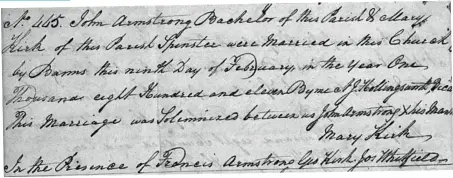 No. 445. John Armstrong Bachelor of this Parish & Mary
Kirk of this Parish Spinster were Married in this Church
by Banns this ninth Day of February in the Year One
Thousand eight Hundred and eleven By me N J Hollingsworth
This Marriage was Solemnized between us John Armstrong X his Mark
Mary Kirk
In the Presence of Francis Armstrong Geo Kirk Jos Whitfield